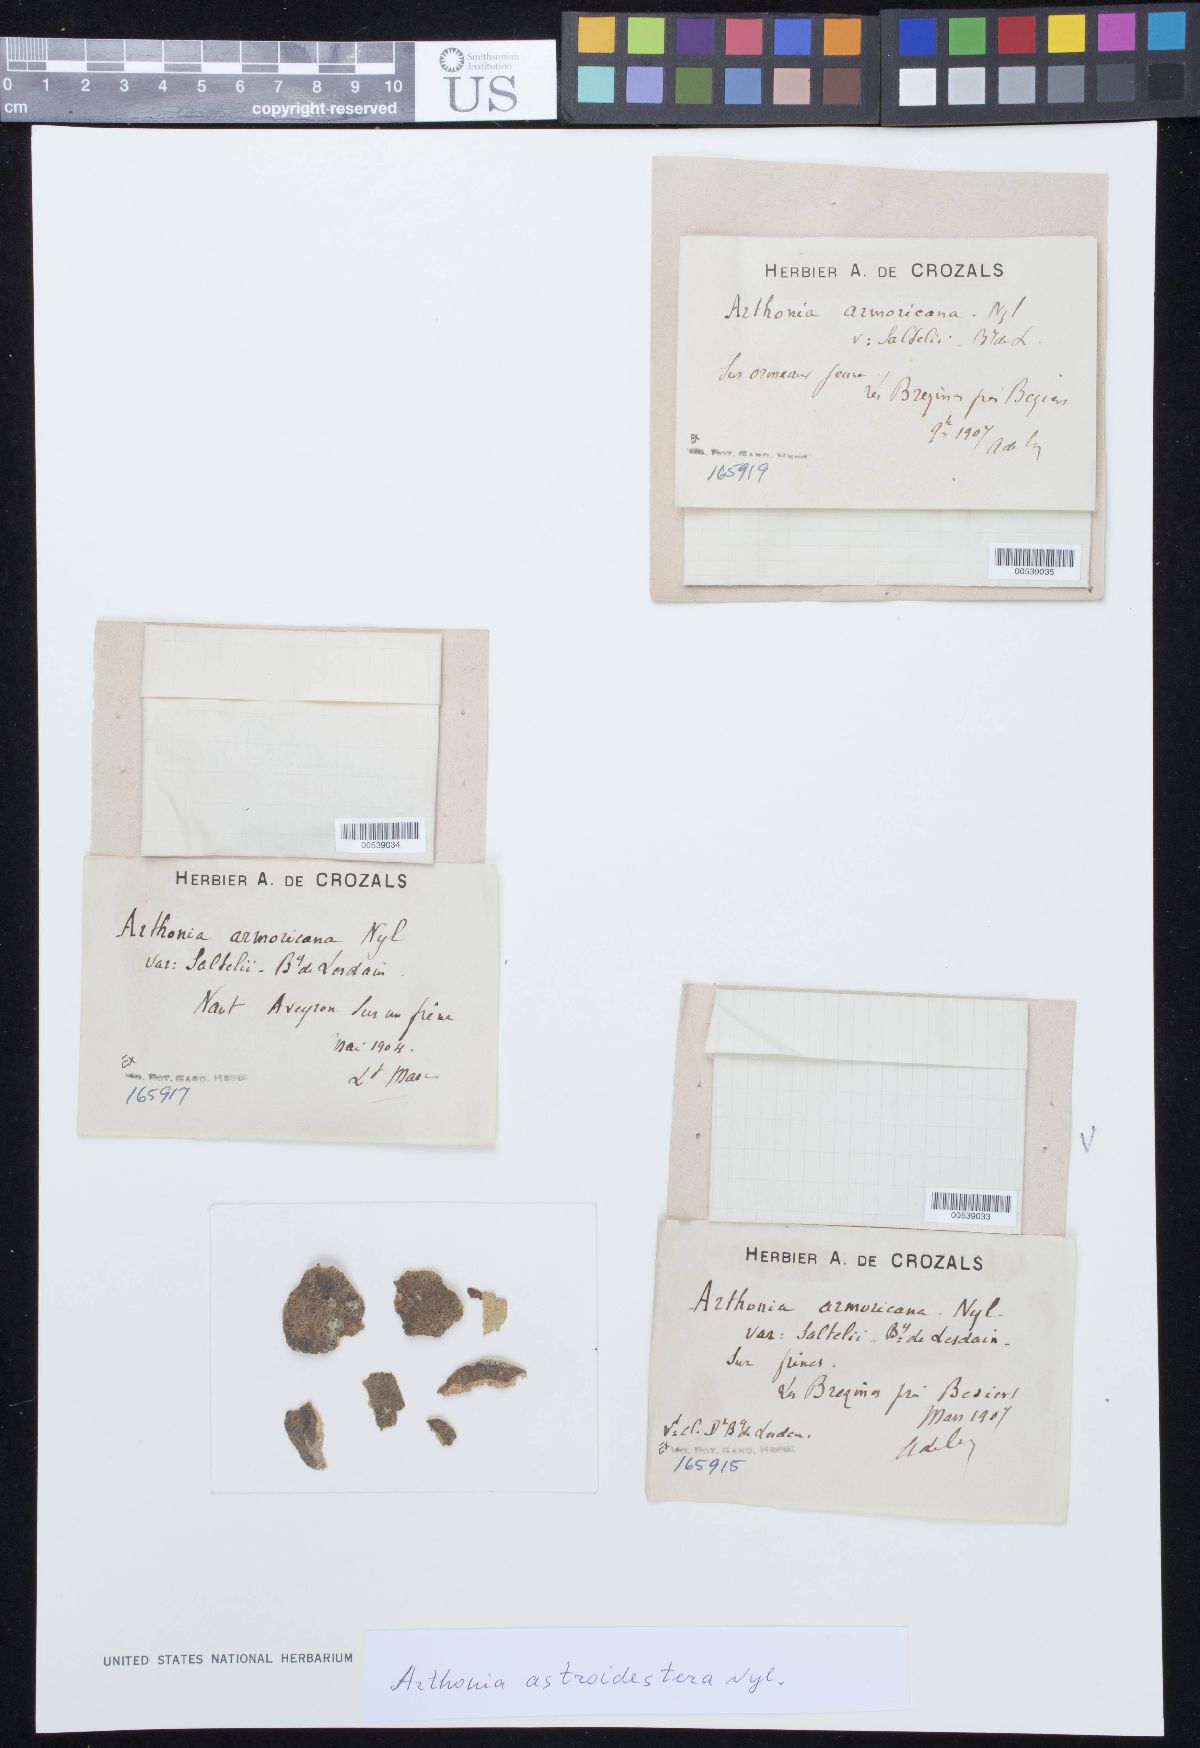 0 1 2 3 4 5 6 7 8 9 10
cm
copyright reserved
Smithsonian
Institution
US
HERBIER A. DE CROZALS
Arthonia armoricana. Nyl
v: Saltelii - By de L.
Sur ormeaux jeune
les Brégines près Beziers
9bre 1907
Ex
Mo. Bot. Gard. Herb.
165919
00539035
00539034
HERBIER A. DE CROZALS
Arthonia armoricana Nyl
var: Saltelii - By de Lesdain.
Nant Aveyron Sur un frêne
Mai 1904.
Lt Marc
Ex
Mo. Bot. Gard. Herb.
165917
00539033
V
HERBIER A. DE CROZALS
Arthonia armoricana. Nyl
var: Saltelii - By de Lesdain.
Sur frênes.
Les Brégines près Beziers
Mars 1907
Ex
Mo. Bot. Gard. Herb.
165915
UNITED STATES NATIONAL HERBARIUM
Arthonia astroidestera Nyl.